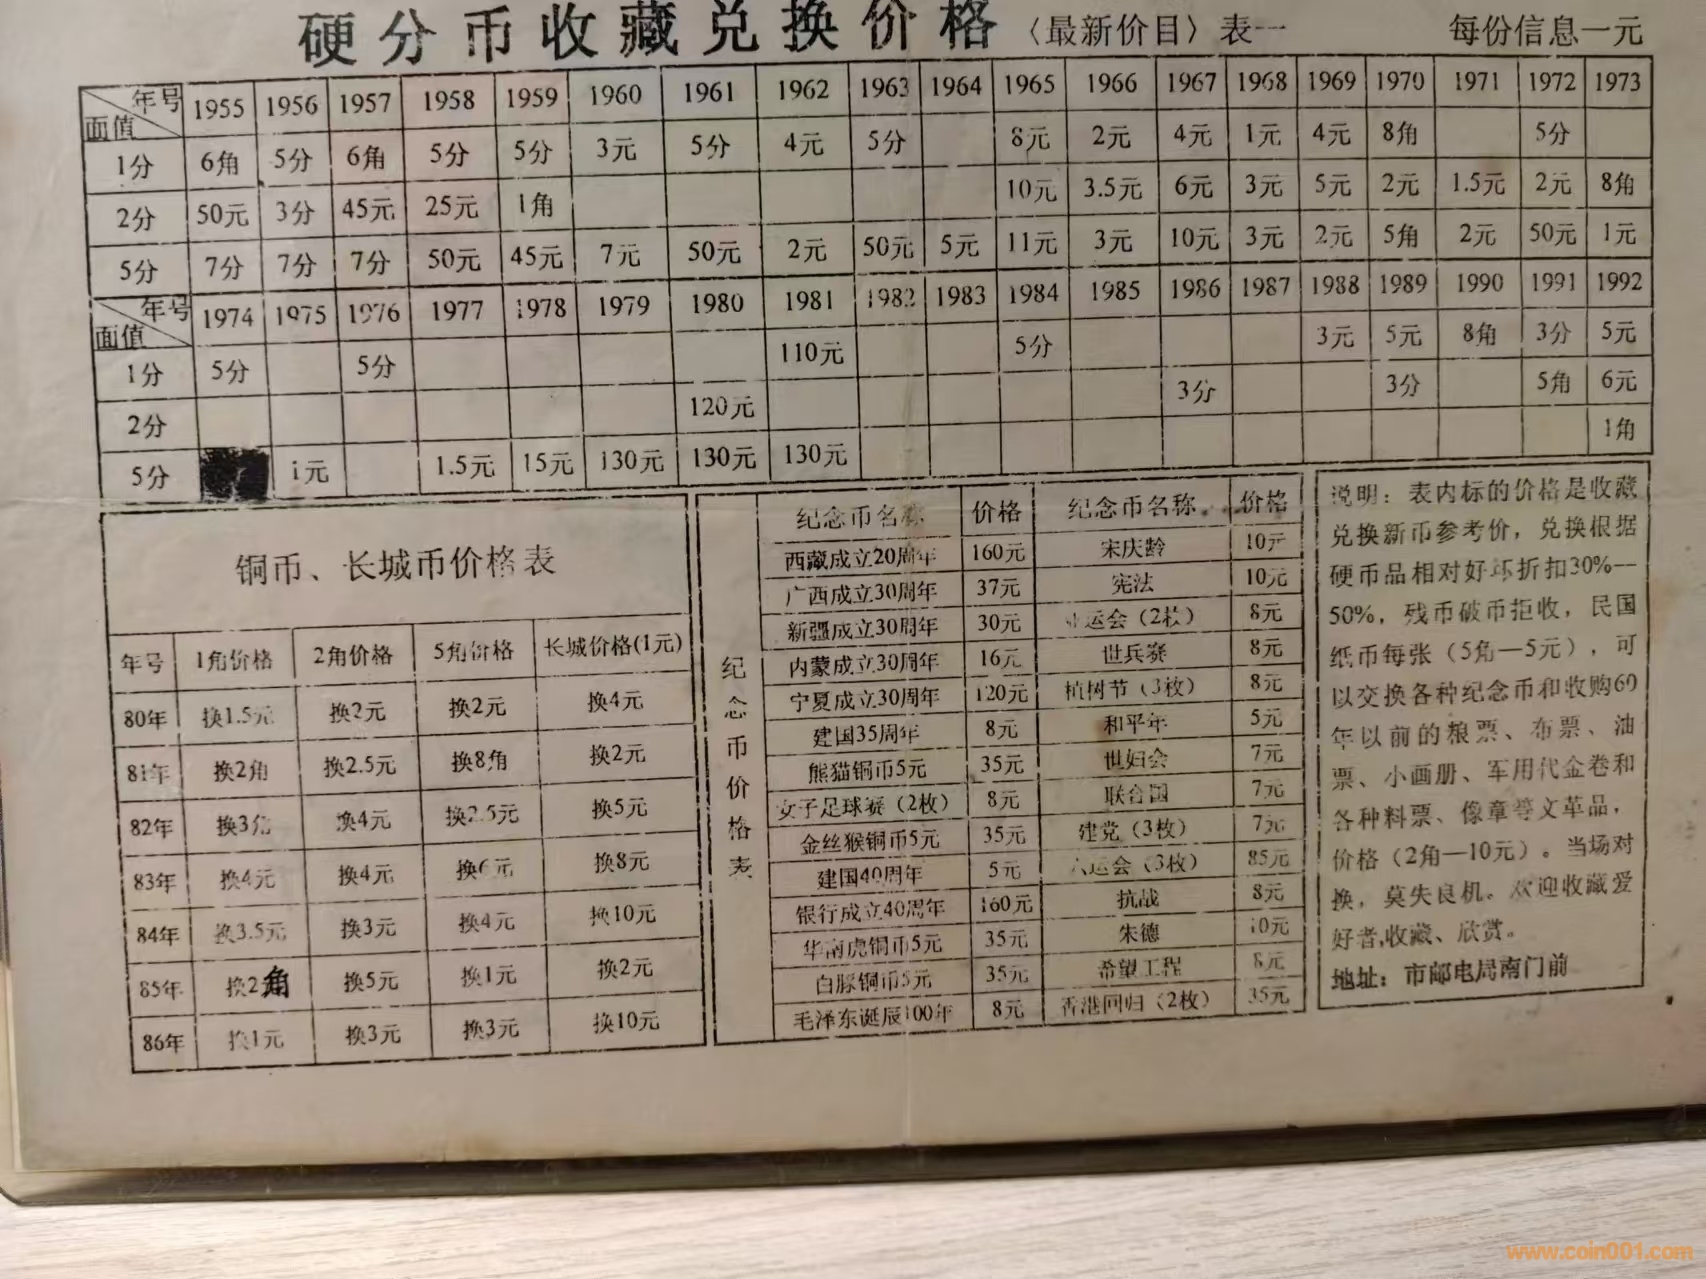 硬分币收藏兑换价格〈最新价目〉表一 每份信息一元
年号 面值 1955 1956 1957 1958 1959 1960 1961 1962 1963 1964 1965 1966 1967 1968 1969 1970 1971 1972 1973
1分 6角 5分 6角 5分 5分 3元 5分 4元 5分 8元 2元 4元 1元 4元 8角 5分
2分 50元 3分 45元 25元 1角 10元 3.5元 6元 3元 5元 2元 1.5元 2元 8角
5分 7分 7分 7分 50元 45元 7元 50元 2元 50元 5元 11元 3元 10元 3元 2元 5角 2元 50元 1元
年号 面值 1974 1975 1976 1977 1978 1979 1980 1981 1982 1983 1984 1985 1986 1987 1988 1989 1990 1991 1992
1分 5分 5分 110元 5分 3元 5元 8角 3分 5元
2分 120元 3分 3分 5角 6元
5分 1元 1.5元 15元 130元 130元 130元 1角
铜币、长城币价格表
年号 1角价格 2角价格 5角价格 长城价格(1元)
80年 换1.5元 换2元 换2元 换4元
81年 换2角 换2.5元 换8角 换2元
82年 换3角 换4元 换2.5元 换5元
83年 换4元 换4元 换6元 换8元
84年 换3.5元 换3元 换4元 换10元
85年 换2角 换5元 换1元 换2元
86年 换1元 换3元 换3元 换10元
纪念币价格表
纪念币名称 价格 纪念币名称 价格
西藏成立20周年 160元 宋庆龄 10元
广西成立30周年 37元 宪法 10元
新疆成立30周年 30元 运会（2枚） 8元
内蒙成立30周年 16元 世乒赛 8元
宁夏成立30周年 120元 植树节（3枚） 8元
建国35周年 8元 和平年 5元
熊猫铜币5元 35元 世妇会 7元
女子足球赛（2枚） 8元 联合国 7元
金丝猴铜币5元 35元 建党（3枚） 7元
建国40周年 5元 运会（3枚） 85元
银行成立40周年 160元 抗战 8元
华南虎铜币5元 35元 朱德 10元
白豚铜币5元 35元 希望工程 8元
毛泽东诞辰100年 8元 香港回归（2枚） 35元
说明：表内标的价格是收藏
兑换新币参考价，兑换根据
硬币品相对好坏折扣30%—
50%，残币破币拒收，民国
纸币每张（5角—5元），可
以交换各种纪念币和收购60
年以前的粮票、布票、油
票、小画册、军用代金卷和
各种料票、像章等文革品，
价格（2角—10元）。当场对
换，莫失良机。欢迎收藏爱
好者,收藏、欣赏。
地址：市邮电局南门前
www.coin001.com